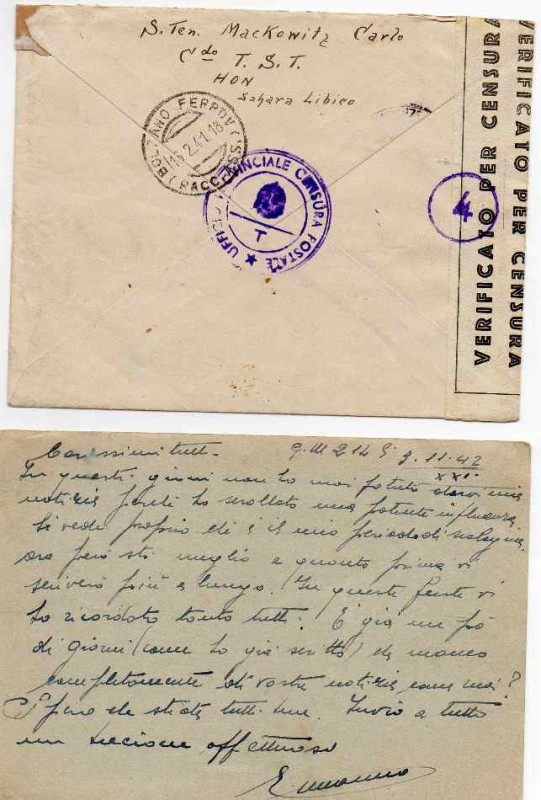 S. Ten. Mackowitz Carlo
C.do T. S. T.
HON
Sahara Libico
BOLZANO FERROVIA
15.2.41.18
(PACCHI
UFFICIO PROVINCIALE CENSURA POSTALE
T
4
VERIFICATO PER CENSURA
VERIFICATO PER CENSURA
Carissimi tutti -
9.11.42
XXI
In questi giorni non ho mai potuto darvi mie
notizie perché ho scrollato una potente influenza
Si vede proprio che è il mio periodo di
ora però sto meglio e quanto prima vi
scriverò più a lungo. In queste feste vi
ho ricordato tanto tutti. È già un pò
di giorni (come ho già scritto) che manco
completamente di vostre notizie come mai?
Spero che stiate tutti bene. Invio a tutti
un bacione affettuoso